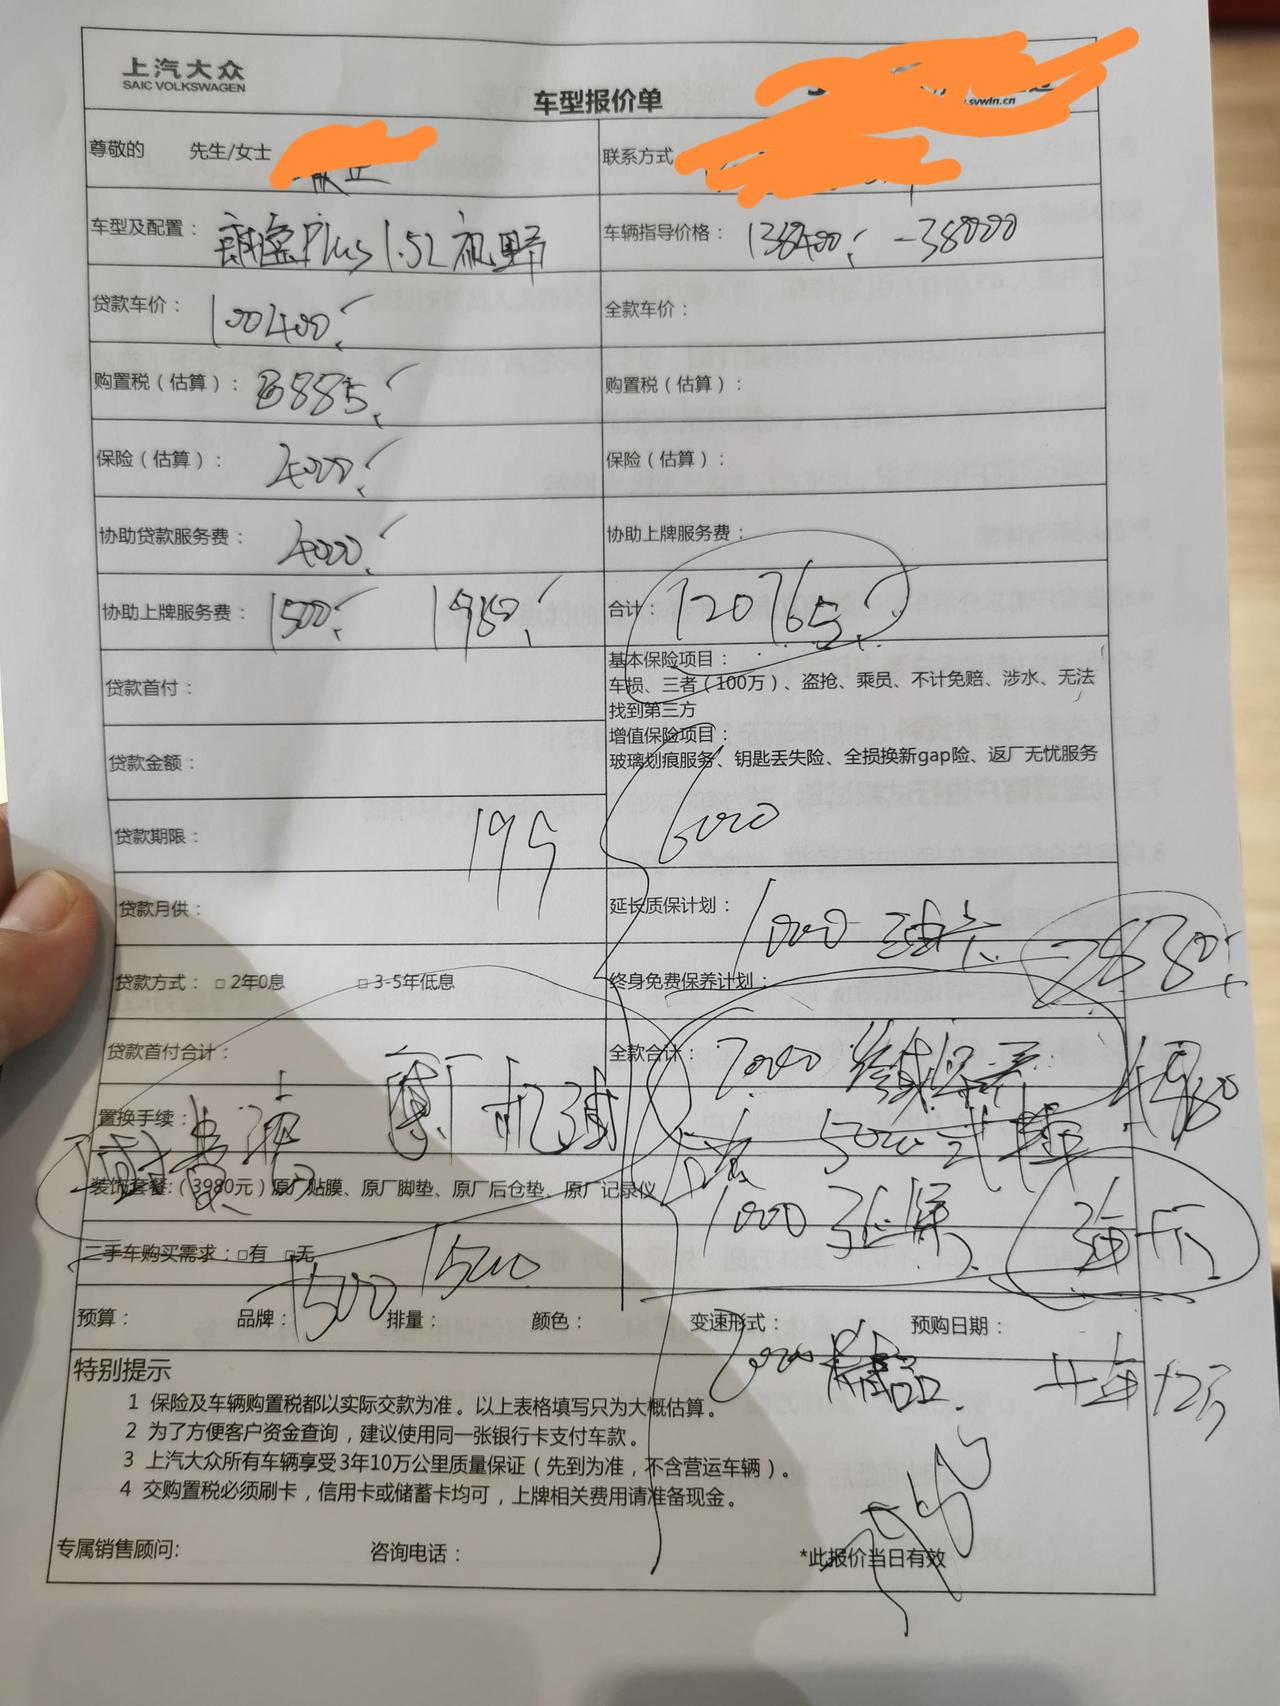 上汽大众
SAIC VOLKSWAGEN
车型报价单
.svwln.cn
尊敬的 先生/女士
联系方式
车型及配置： 朗逸Plus 1.5L 视野
车辆指导价格： 138400. -38000
贷款车价： 100400.
全款车价：
购置税（估算）： 8885.
购置税（估算）：
保险（估算）： 4000.
保险（估算）：
协助贷款服务费： 4000.
协助上牌服务费：
协助上牌服务费： 1500. 1980.
合计： 120765.
贷款首付：
基本保险项目：
车损、三者（100万）、盗抢、乘员、不计免赔、涉水、无法
找到第三方
贷款金额：
增值保险项目：
玻璃划痕服务、钥匙丢失险、全损换新gap险、返厂无忧服务
贷款期限： 195
6000
贷款月供：
延长质保计划： 1000 油卡
贷款方式： □ 2年0息 □ 3-5年低息
终身免费保养计划：
贷款首付合计：
全款合计： 2000 终身保养
置换手续：
5000
装饰套餐:（3980元）原厂贴膜、原厂脚垫、原厂后仓垫、原厂记录仪
1000 延保
二手车购买需求：□有 □无
1500 1500
预算： 品牌： 排量： 颜色： 变速形式： 预购日期：
特别提示
1 保险及车辆购置税都以实际交款为准。以上表格填写只为大概估算。
2 为了方便客户资金查询，建议使用同一张银行卡支付车款。
3 上汽大众所有车辆享受3年10万公里质量保证（先到为准，不含营运车辆）。
4 交购置税必须刷卡，信用卡或储蓄卡均可，上牌相关费用请准备现金。
专属销售顾问: 咨询电话： *此报价当日有效